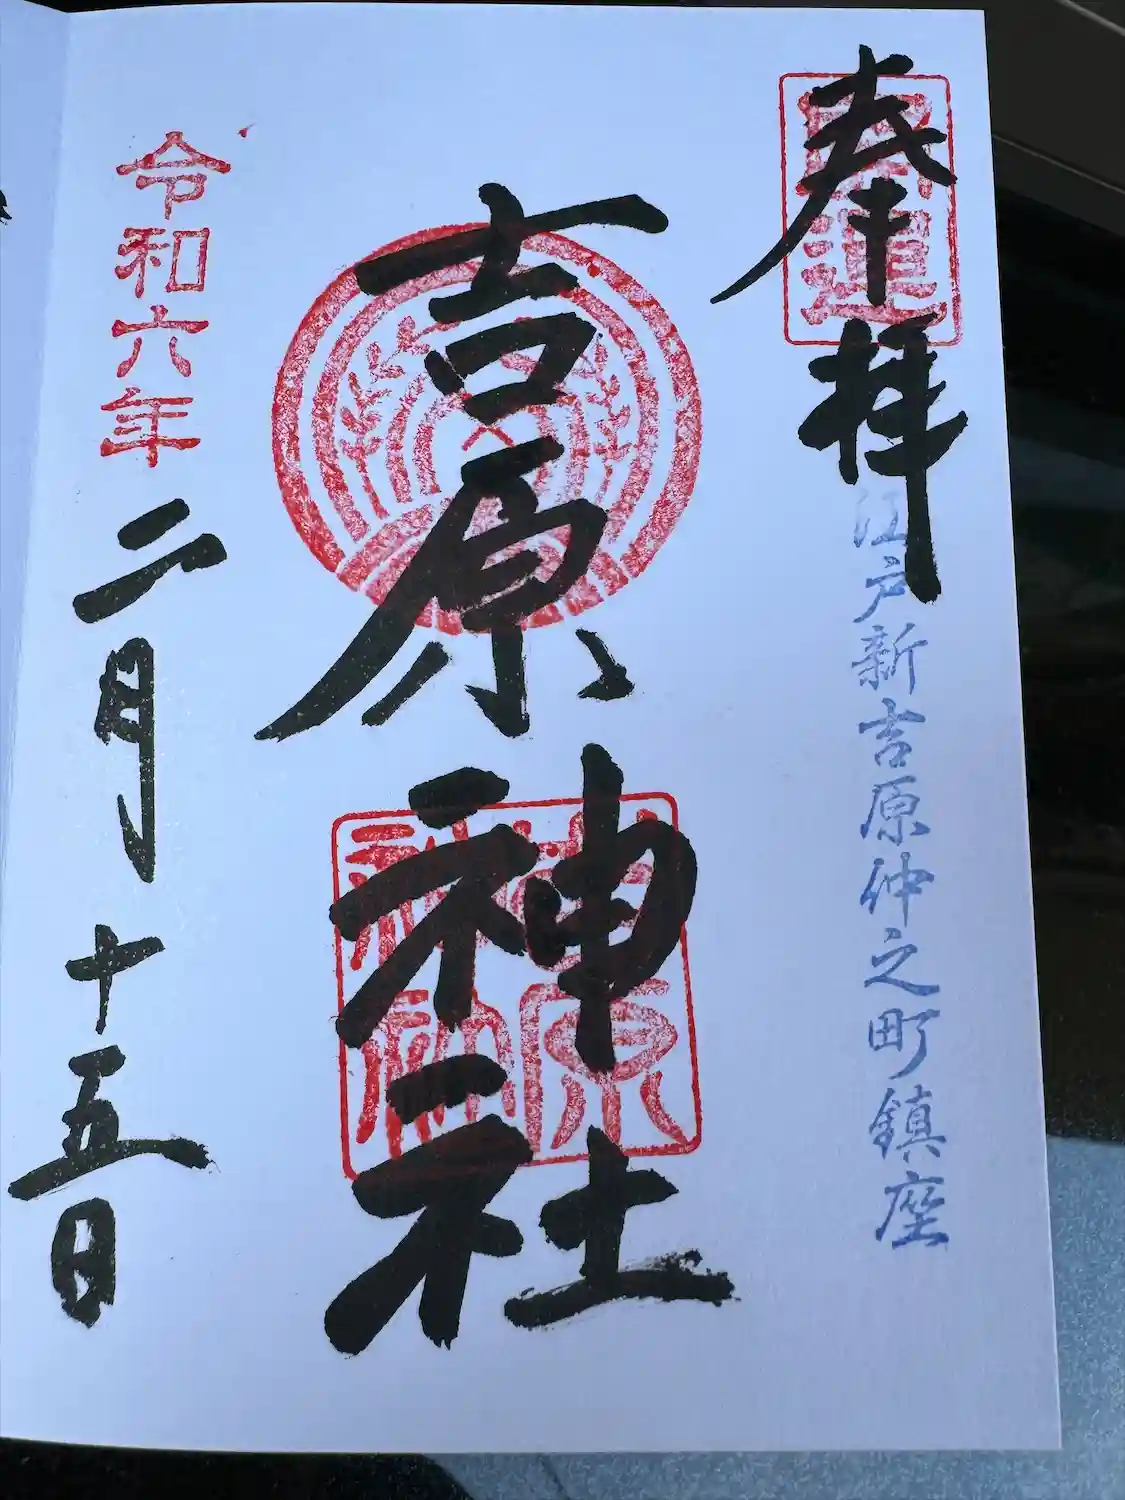 奉拝
開運
江戸新吉原仲之町鎮座
吉原神社
吉原
神社
令和六年
二月十五日